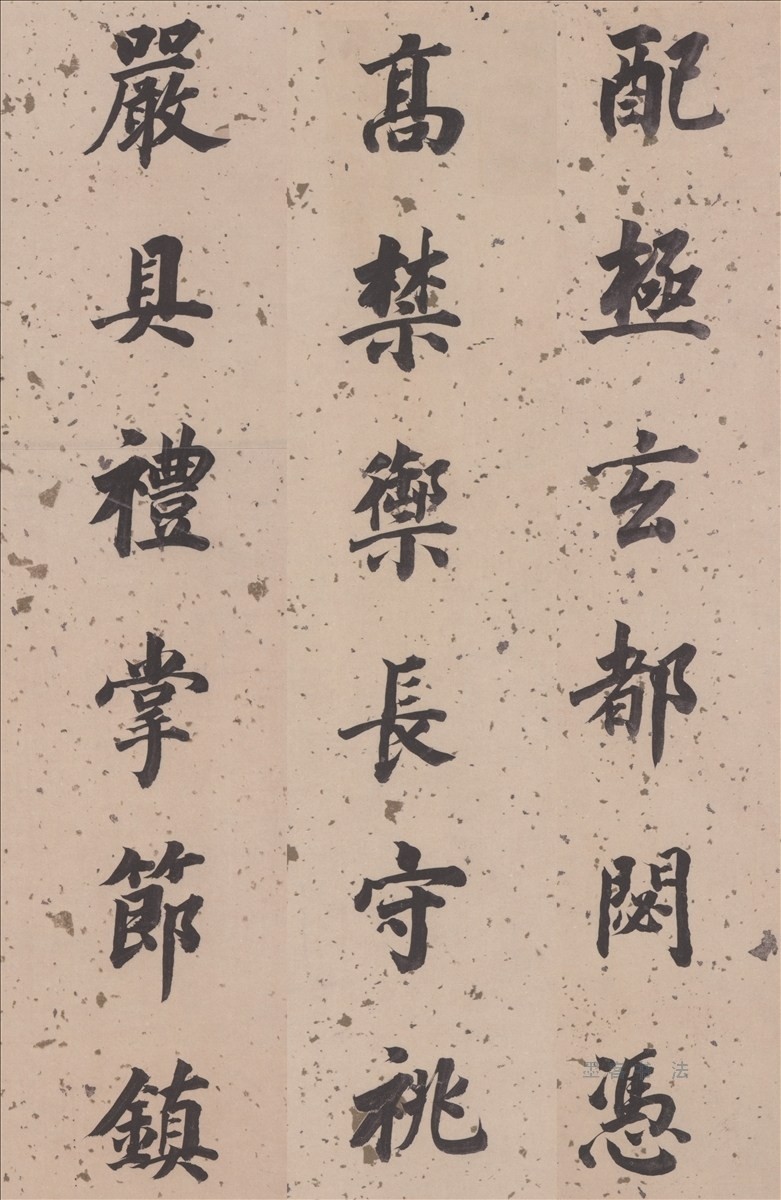 配極玄都閟憑
高禁籞長守祧
嚴具禮掌節鎮